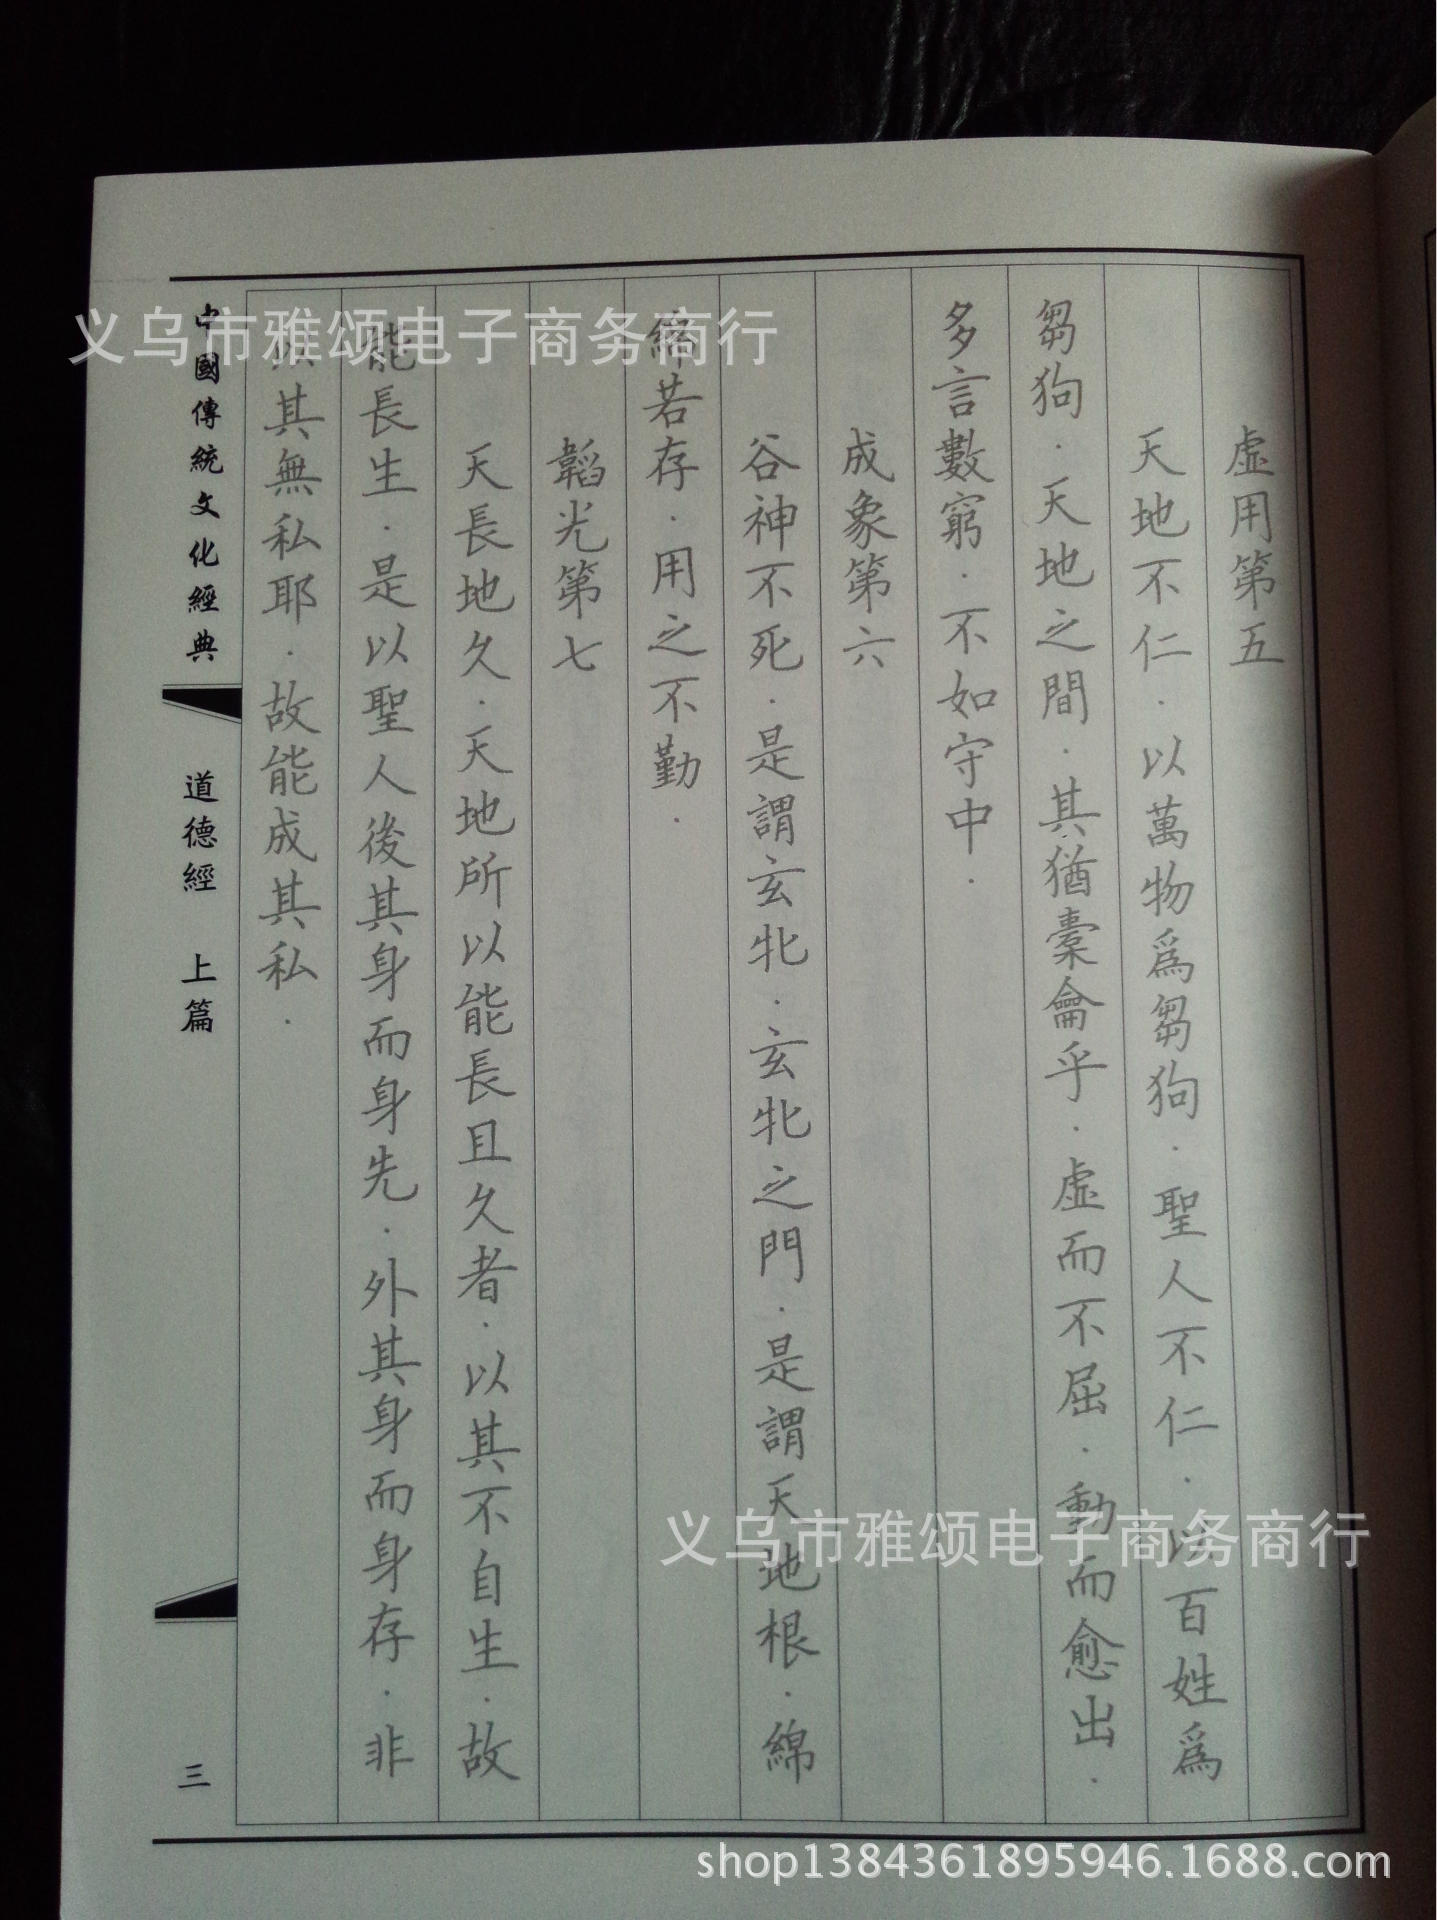 虛用第五
天地不仁．以萬物爲芻狗．聖人不仁．以百姓爲
芻狗．天地之間．其猶橐龠乎．虛而不屈．動而愈出．
多言數窮．不如守中．
成象第六
谷神不死．是謂玄牝．玄牝之門．是謂天地根．綿
綿若存．用之不勤．
韜光第七
天長地久．天地所以能長且久者．以其不自生．故
能長生．是以聖人後其身而身先．外其身而身存．非
以其無私耶．故能成其私．
中國傳統文化經典
道德經 上篇
三
义乌市雅颂电子商务商行
义乌市雅颂电子商务商行
shop1384361895946.1688.com